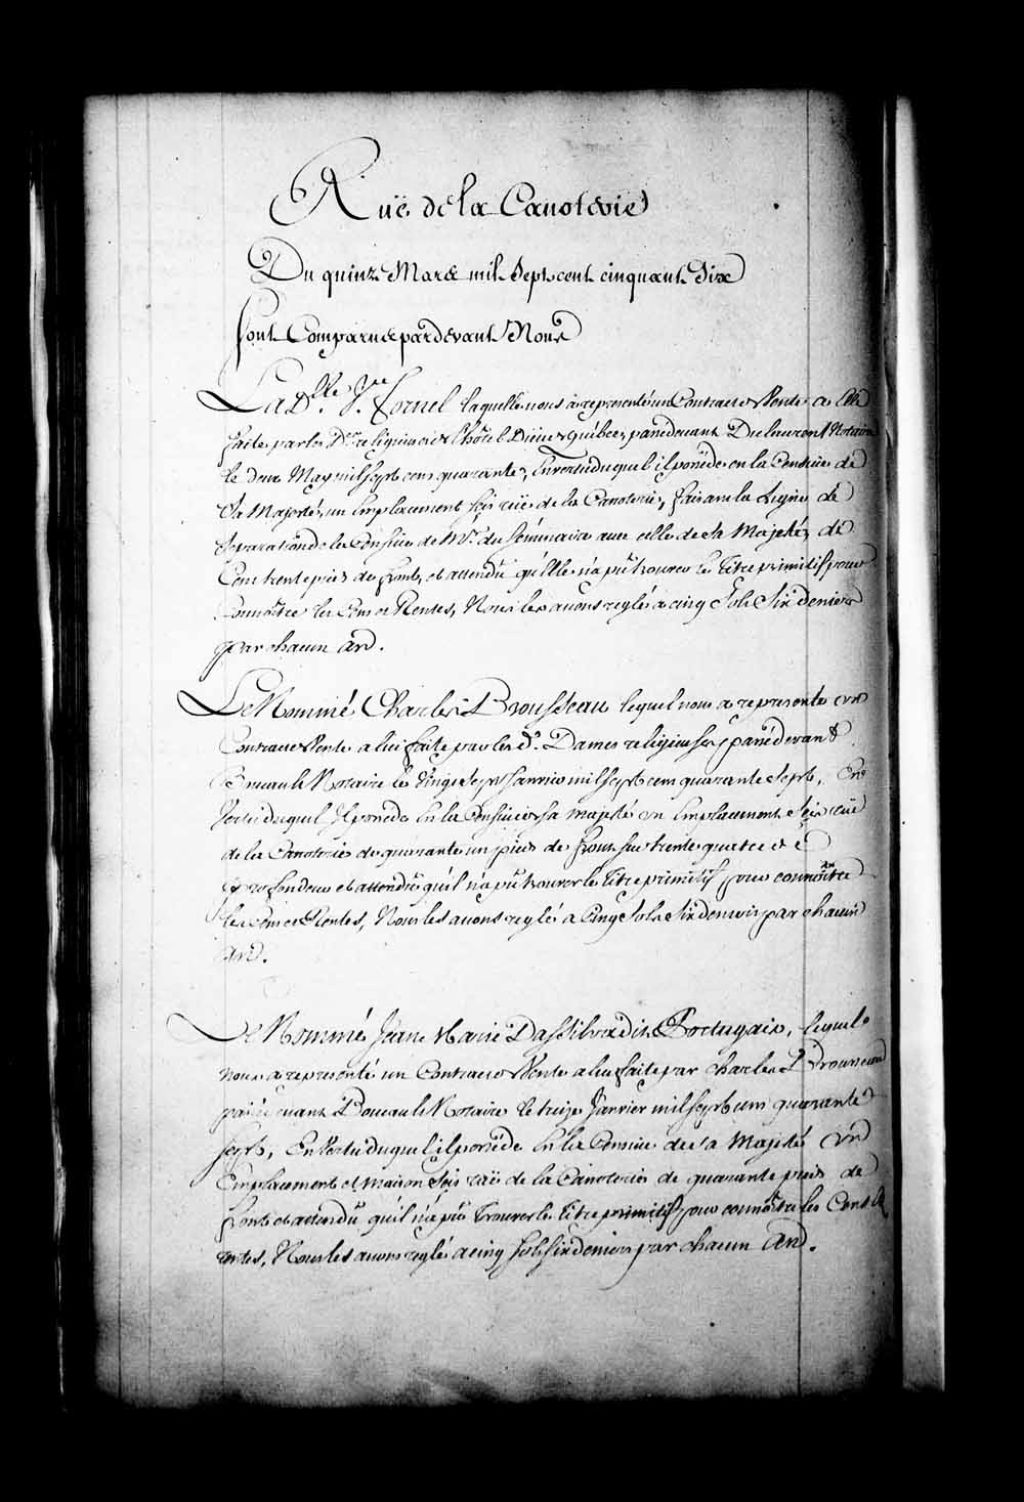 Rue de la Canoterie
Du quinze Mars mil sept cent cinquante Six
Sont Comparus pardevant Nous
La Dlle Jne Cornel laquelle nous a representé un Contract de Vente a Elle
faite par les Des religieuses de l'hôtel Dieu de québec, pardevant Dulaurent Notaire
le deux May mil sept cens quarante, En vertu duquel il possede en la Censive de
Sa Majesté, un Emplacement sçis rüe de la Canoterie, faisant la Ligne de
Separation de la Censive de Mrs du Séminaire avec celle de Sa Majesté, de
Cent trente pieds de front, et attendu qu'Elle n'a pû trouver le Titre primitif pour
Connoître les Cens et Rentes, Nous les avons reglé a cinq Sols Six deniers
par chacun An.
Le Nommé Charles Brousseau lequel nous a representé un
Contract de Vente a lui faite par les des. Dames religieuses pardevant
Notaire le Vingt Sept Janvier mil sept cens quarante Sept, En
Vertu duquel Il possede En la Censive de sa majesté un Emplacement Scis rüe
de la Canoterie de quarante un pieds de front sur trente quatre de
profondeur et attendu qu'il n'a pû trouver le Titre primitif pour connoître
les Cens et Rentes, Nous les avons reglé a Cinq Sols Six deniers par chacun
An.
Le Nommé Jean Marie DasSilva dit Portugais, lequel
nous a representé un Contract de Vente a lui faite par Charles Brousseau
pardevant Notaire le treize Janvier mil sept cens quarante
sept, En Vertu duquel il possede En la Censive de Sa Majesté un
Emplacement et maison Scis rüe de la Canoterie de quarante pieds de
front et attendu qu'il n'a pû Trouver le Titre primitif pour connoître les Cens &
rentes, Nous les avons reglé a cinq sols six deniers par chacun An.